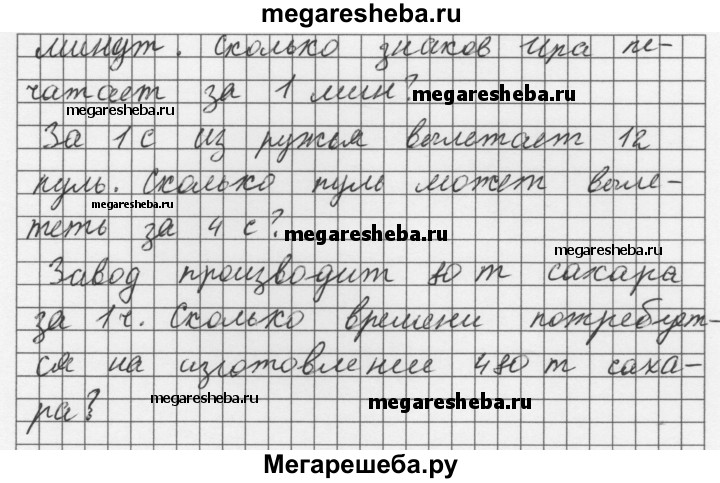 megaresheba.ru
минут. Сколько знаков Ира пе-
чатает за 1 мин?
megaresheba.ru
megaresheba.ru
За 1 с из ружья вылетает 12
пуль. Сколько пуль может выле-
megaresheba.ru
теть за 4 с?
megaresheba.ru
megaresheba.ru
Завод производит 80 т сахара
за 1 ч. Сколько времени потребует-
ся на изготовление 480 т саха-
ра?
megaresheba.ru
megaresheba.ru
Мегарешеба.ру